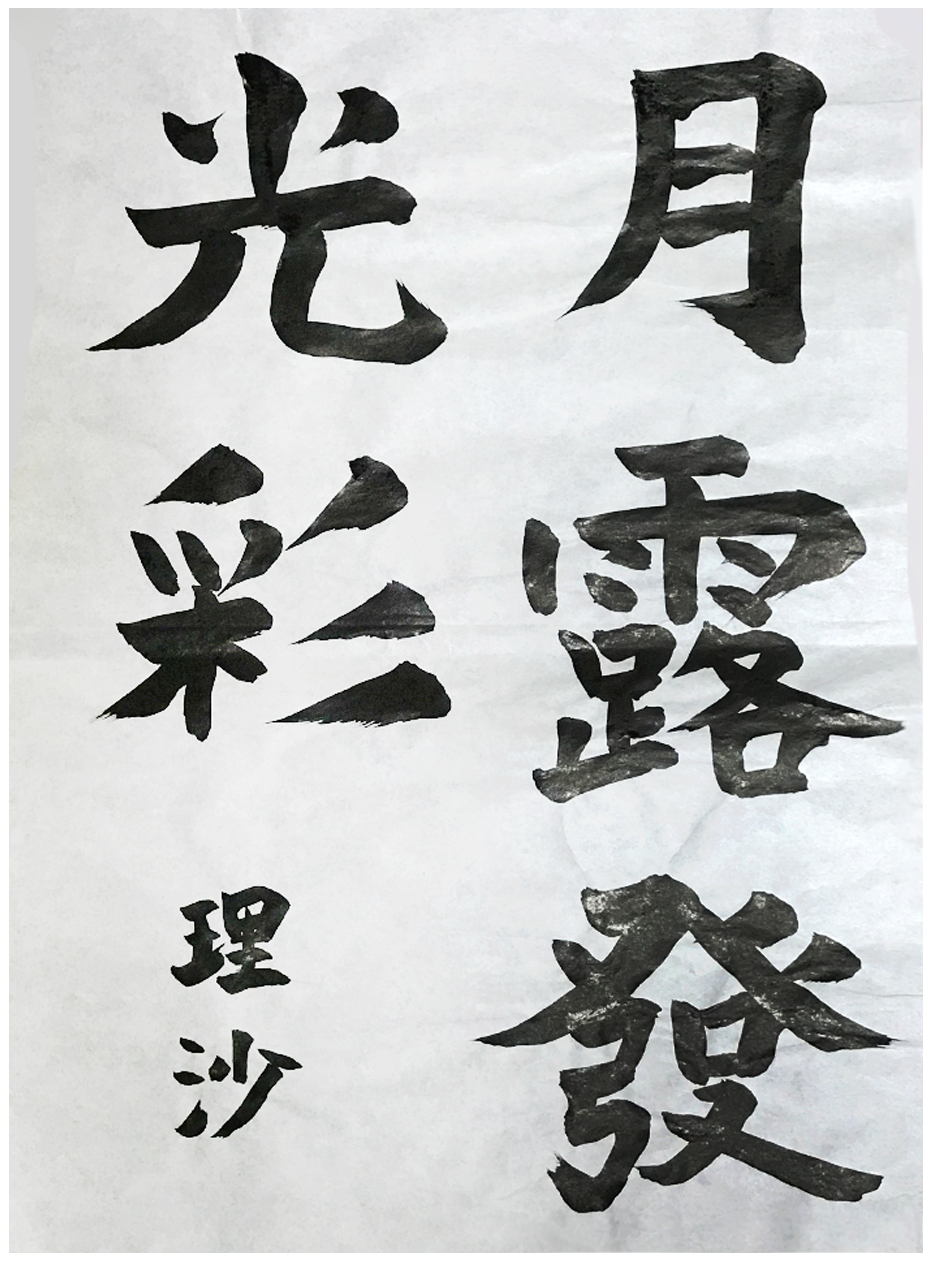 月露發
光彩
理沙